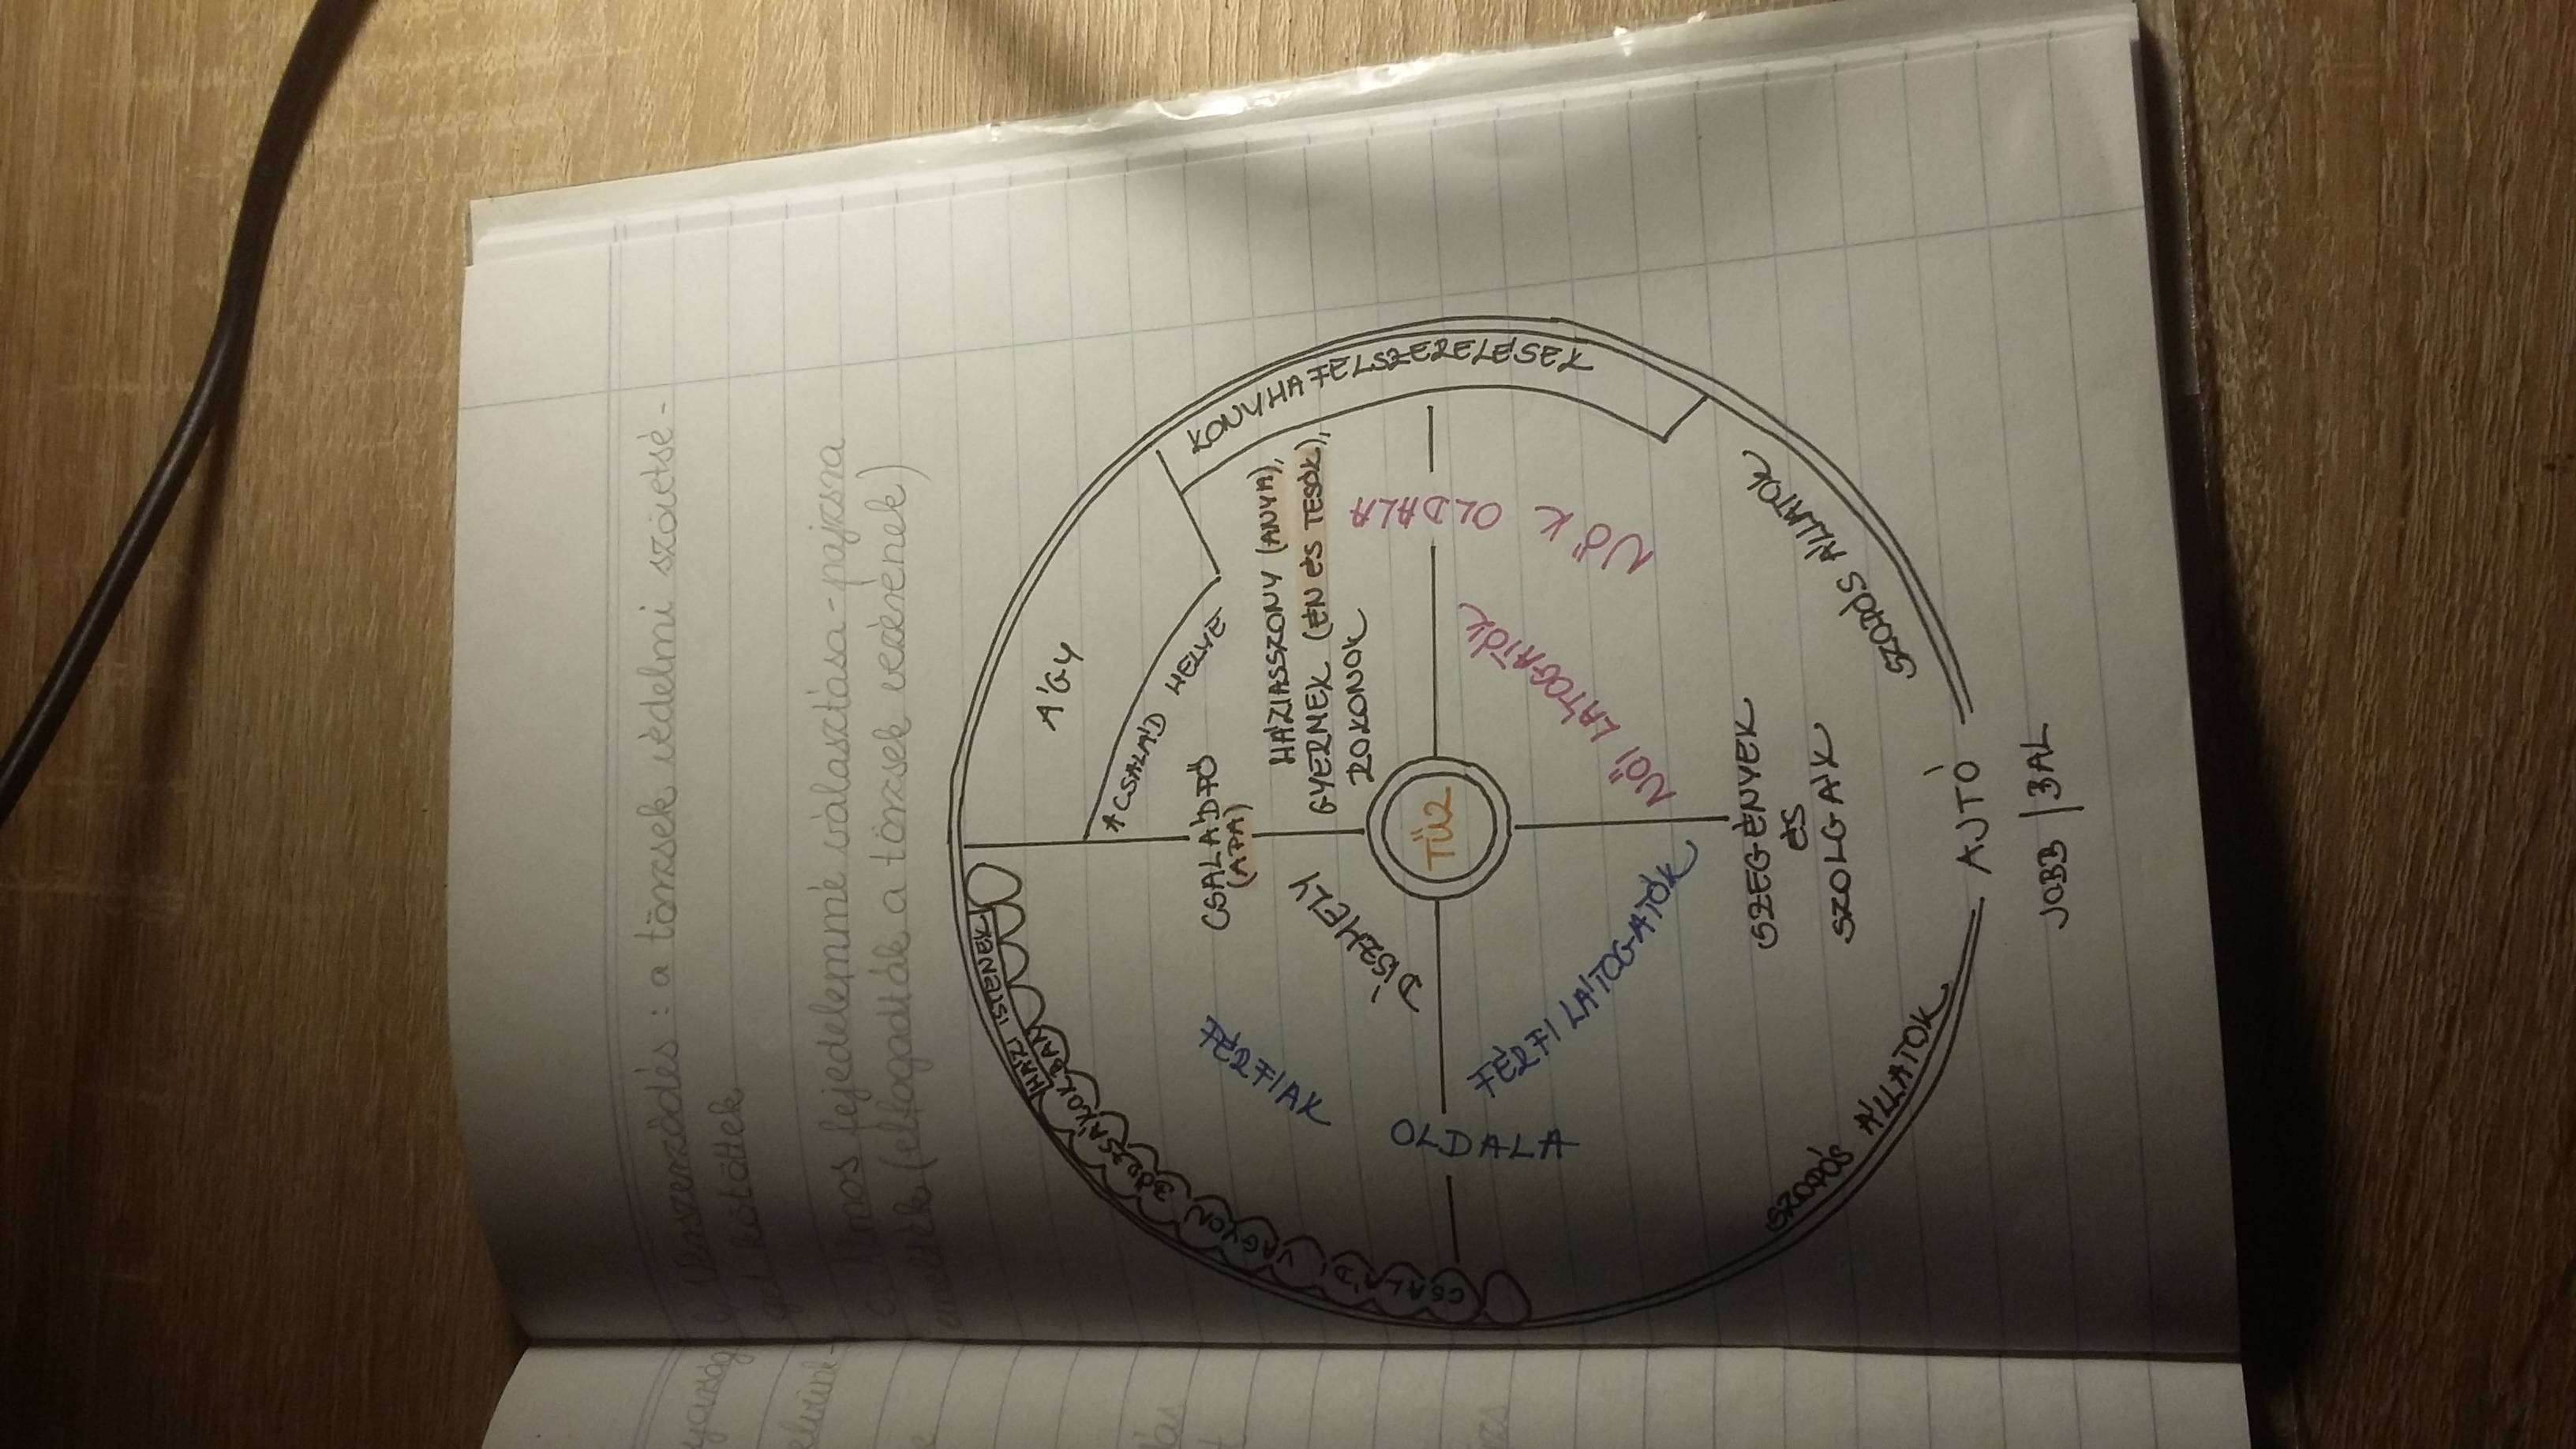 vérszerződés: a törzsek védelmi szövetsé-
get kötöttek
Álmos fejedelemmé választása - pajzsra
emelték (elfogadták a törzsek vezérének)
ÁGY
A CSALÁD HELYE
HÁZI ISTENEK
CSALÁDI VAGYON BŐRZSÁKOKBAN
KONYHAFELSZERELÉSEK
CSALÁDFŐ
(APA)
HÁZIASSZONY (ANYA),
GYERMEK (ÉN ÉS TESÓK),
ROKONOK
DÍSZHELY
FÉRFIAK
OLDALA
NŐK OLDALA
TŰZ
FÉRFI LÁTOGATÓK
NŐI LÁTOGATÓK
SZEGÉNYEK
ÉS
SZOLGÁK
SZOPÓS ÁLLATOK
SZOPÓS ÁLLATOK
AJTÓ
JOBB | BAL